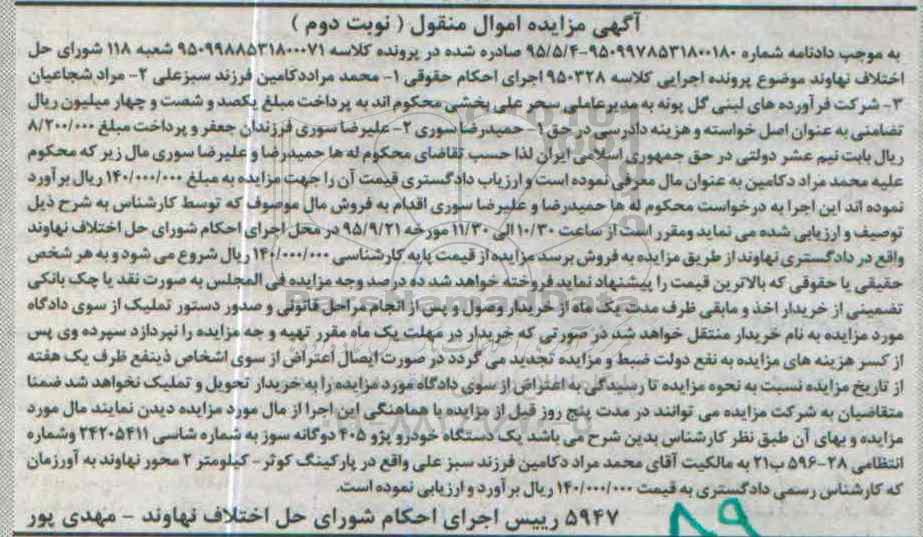 آگهی مزایده اموال منقول ( نوبت دوم )
به موجب دادنامه شماره ۹۵۰۹۹۷۸۵۳۱۸۰۰۱۸۰-۹۵/۵/۴ صادره شده در پرونده کلاسه ۹۵۰۹۹۸۸۵۳۱۸۰۰۰۷۱ شعبه ۱۱۸ شورای حل
اختلاف نهاوند موضوع پرونده اجرایی کلاسه ۹۵۰۳۲۸ اجرای احکام حقوقی ۱- محمد مراددکامین فرزند سبزعلی ۲- مراد شجاعیان
۳- شرکت فرآورده های لبنی گل پونه به مدیرعاملی سحر علی بخشی محکوم اند به پرداخت مبلغ یکصد و شصت و چهار میلیون ریال
تضامنی به عنوان اصل خواسته و هزینه دادرسی در حق ۱- حمیدرضا سوری ۲- علیرضا سوری فرزندان جعفر و پرداخت مبلغ ۸/۲۰۰/۰۰۰
ریال بابت نیم عشر دولتی در حق جمهوری اسلامی ایران لذا حسب تقاضای محکوم له ها حمیدرضا و علیرضا سوری مال زیر که محکوم
علیه محمد مراد دکامین به عنوان مال معرفی نموده است و ارزیاب دادگستری قیمت آن را جهت مزایده به مبلغ ۱۴۰/۰۰۰/۰۰۰ ریال برآورد
نموده اند این اجرا به درخواست محکوم له ها حمیدرضا و علیرضا سوری اقدام به فروش مال موصوف که توسط کارشناس به شرح ذیل
توصیف و ارزیابی شده می نماید ومقرر است از ساعت ۱۰/۳۰ الی ۱۱/۳۰ مورخه ۹۵/۹/۲۱ در محل اجرای احکام شورای حل اختلاف نهاوند
واقع در دادگستری نهاوند از طریق مزایده به فروش برسد مزایده از قیمت پایه کارشناسی ۱۴۰/۰۰۰/۰۰۰ ریال شروع می شود و به هر شخص
حقیقی یا حقوقی که بالاترین قیمت را پیشنهاد نماید فروخته خواهد شد ده درصد وجه مزایده فی المجلس به صورت نقد یا چک بانکی
تضمینی از خریدار اخذ و مابقی ظرف مدت یک ماه از خریدار وصول و پس از انجام مراحل قانونی و صدور دستور تملیک از سوی دادگاه
مورد مزایده به نام خریدار منتقل خواهد شد در صورتی که خریدار در مهلت یک ماه مقرر تهیه و جه مزایده را نپردازد سپرده وی پس
از کسر هزینه های مزایده به نفع دولت ضبط و مزایده تجدید می گردد در صورت ایصال اعتراض از سوی اشخاص ذینفع ظرف یک هفته
از تاریخ مزایده نسبت به نحوه مزایده تا رسیدگی به اعتراض از سوی دادگاه مورد مزایده را به خریدار تحویل و تملیک نخواهد شد ضمنا
متقاضیان به شرکت مزایده می توانند در مدت پنج روز قبل از مزایده با هماهنگی این اجرا از مال مورد مزایده دیدن نمایند مال مورد
مزایده و بهای آن طبق نظر کارشناس بدین شرح می باشد یک دستگاه خودرو پژو ۴۰۵ دوگانه سوز به شماره شاسی ۲۴۲۰۵۴۱۱ وشماره
انتظامی ۲۸-۵۹۶ ب۲۱ به مالکیت آقای محمد مراد دکامین فرزند سبز علی واقع در پارکینگ کوثر- کیلومتر ۲ محور نهاوند به آورزمان
که کارشناس رسمی دادگستری به قیمت ۱۴۰/۰۰۰/۰۰۰ ریال برآورد و ارزیابی نموده است.
۵۹۴۷ رییس اجرای احکام شورای حل اختلاف نهاوند - مهدی پور
۸۹
ParsNamadData